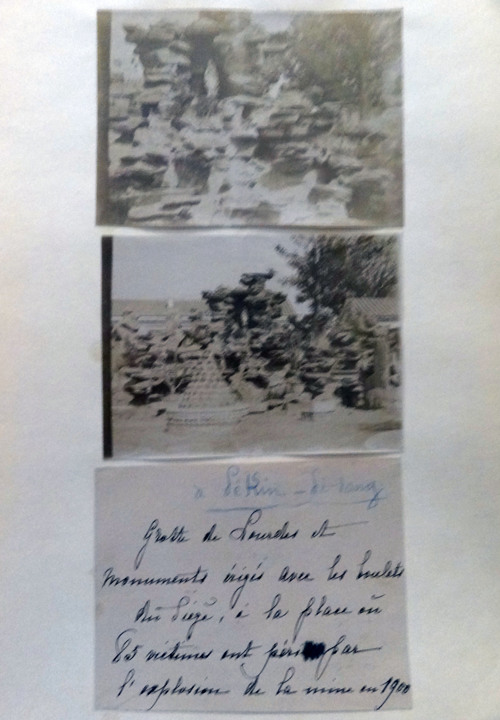 à Pékin - Pé-tang
Grotte de Lourdes et
monuments érigés avec les boulets
du Siège, à la place où
85 victimes ont péri par
l'explosion de la mine en 1900